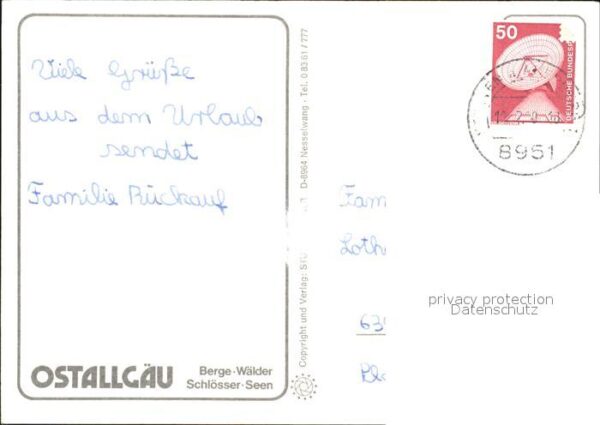 Viele Grüße
aus dem Urlaub
sendet
Familie Rückauf
OSTALLGÄU
Berge·Wälder
Schlösser·Seen
Copyright und Verlag: STU
D-8964 Nesselwang · Tel. 0 83 61 / 777
50
DEUTSCHE BUNDESP
8961
Fam
Loth
privacy protection
Datenschutz